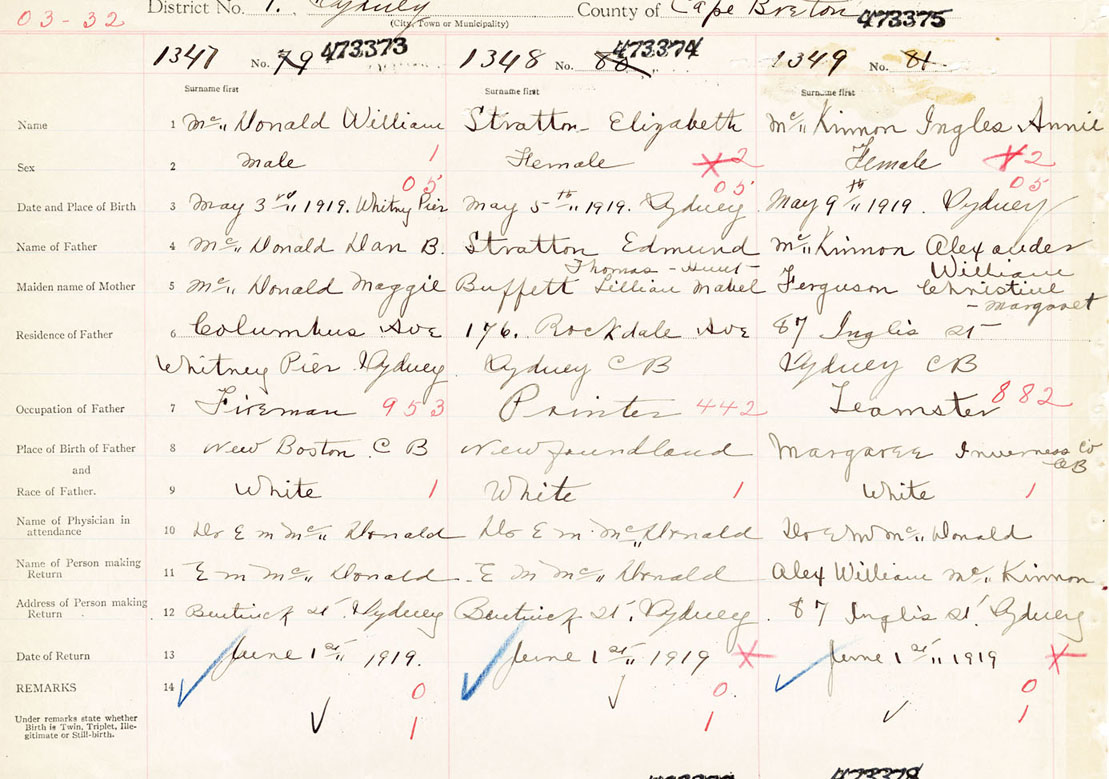 District No. 1. Sydney County of Cape Breton
(City, Town or Municipality)
03-32
473375
1347 No. 79 473373 1348 No. 80 473374 1349 No. 81
Surname first Surname first Surname first
Name 1 Mc" Donald William Stratton - Elizabeth Mc" Kinnon Ingles Annie
Sex 2 Male 1 Female 2 Female 2
05 05 05
Date and Place of Birth 3 May 3rd" 1919. Whitney Pier May 5th" 1919. Sydney May 9th" 1919. Sydney
Name of Father 4 Mc" Donald Dan B. Stratton Edmund Mc" Kinnon Alexander
Thomas - Hunt - William
Maiden name of Mother 5 Mc" Donald Maggie Buffett Lillian Mabel Ferguson Christine
- Margaret
Residence of Father 6 Columbus Ave 176. Rockdale Ave 87 Inglis St
Whitney Pier Sydney Sydney C B Sydney C B
Occupation of Father 7 Fireman 953 Painter 442 Teamster 882
Place of Birth of Father 8 New Boston C B Newfoundland Margaree Inverness Co
and CB
Race of Father. 9 White 1 White 1 White 1
Name of Physician in attendance 10 Dr E M Mc" Donald Dr E M. Mc" Donald Dr E M Mc" Donald
Name of Person making Return 11 E M Mc" Donald E M Mc" Donald Alex William Mc" Kinnon
Address of Person making Return 12 Bentinck St. Sydney Bentinck St. Sydney 87 Inglis St. Sydney
Date of Return 13 June 1st" 1919. June 1st" 1919 June 1st" 1919
REMARKS 14 0 0. 0
Under remarks state whether
Birth is Twin, Triplet, Ille-
gitimate or Still-birth.
1 1 1